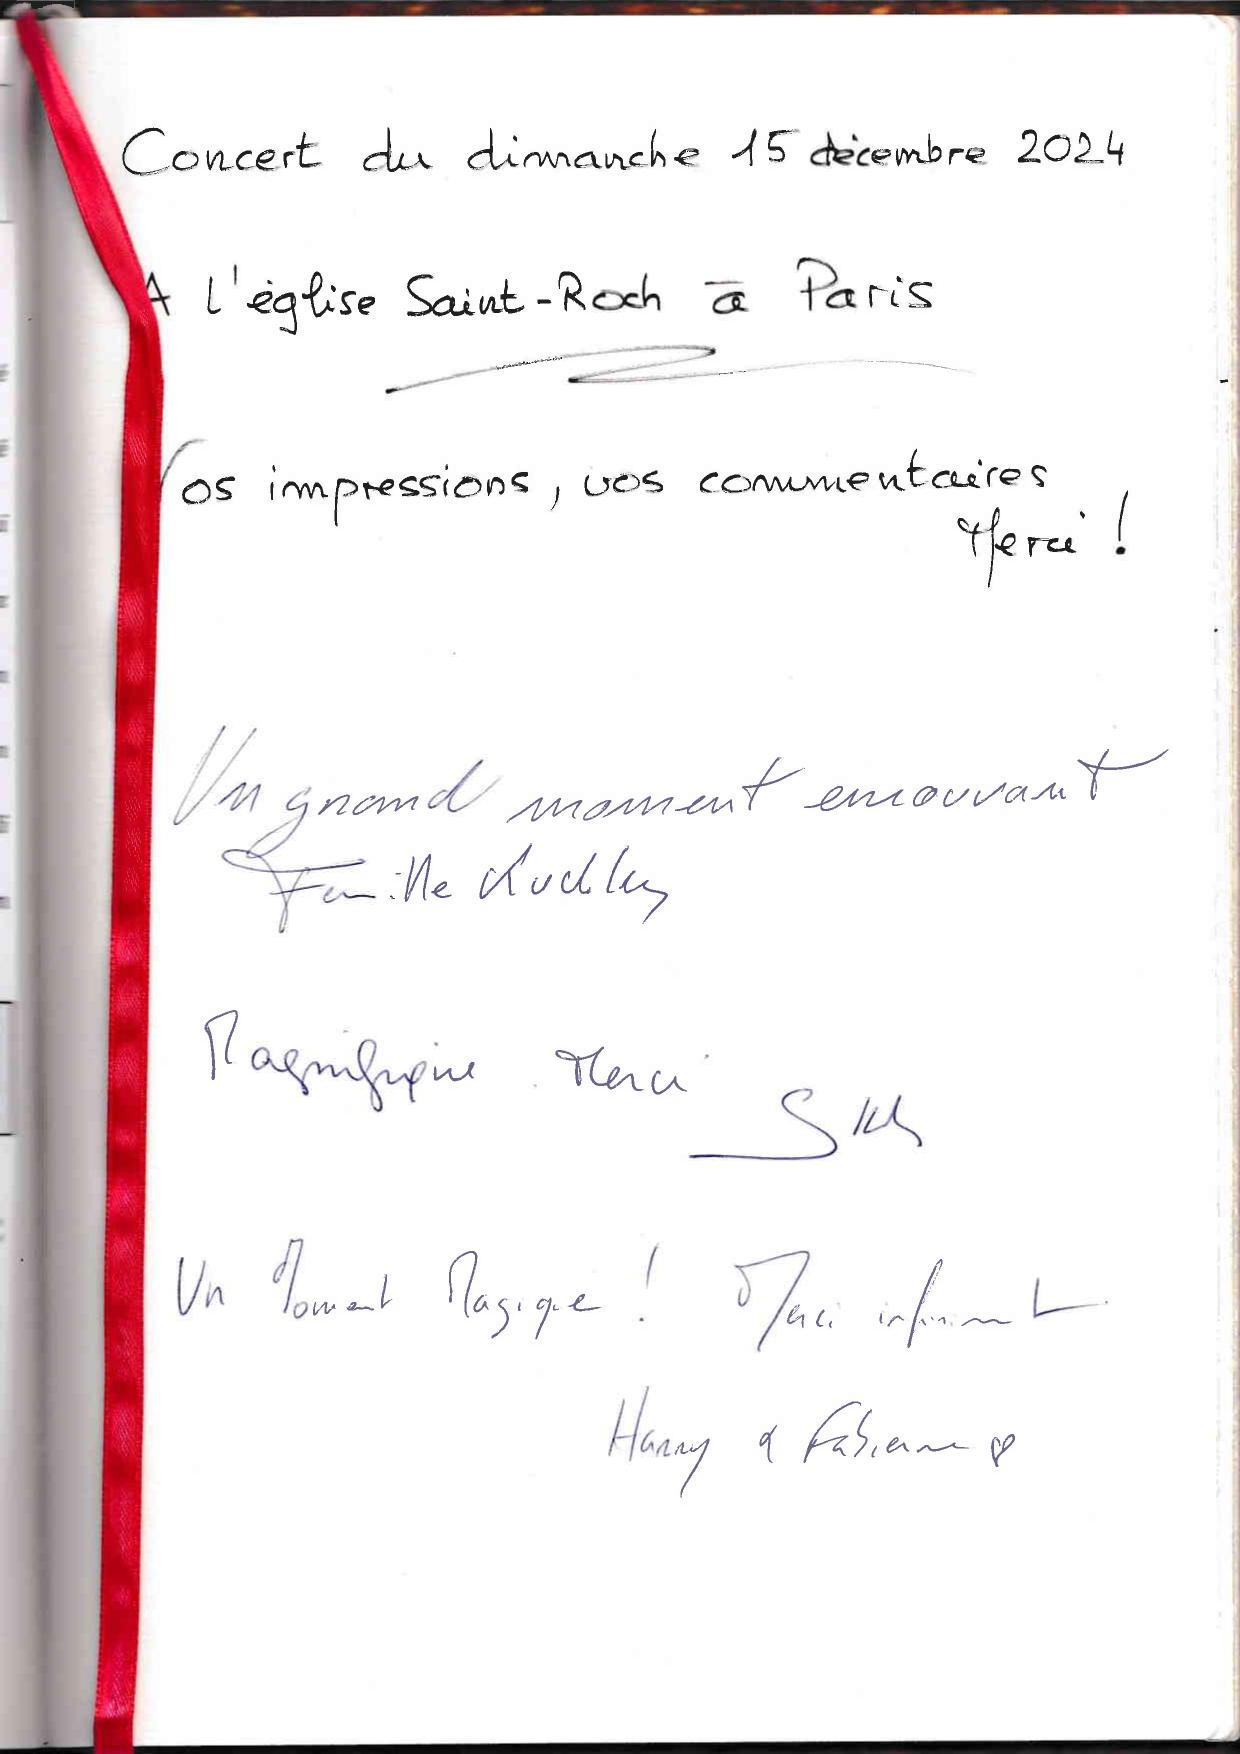 Concert du dimanche 15 décembre 2024
A l'église Saint-Roch à Paris
Vos impressions, vos commentaires
Merci !
Un grand moment emouvant
Famille
Magnifique. Merci
Un Moment Magique ! Merci infiniment
Harry & Fabienne